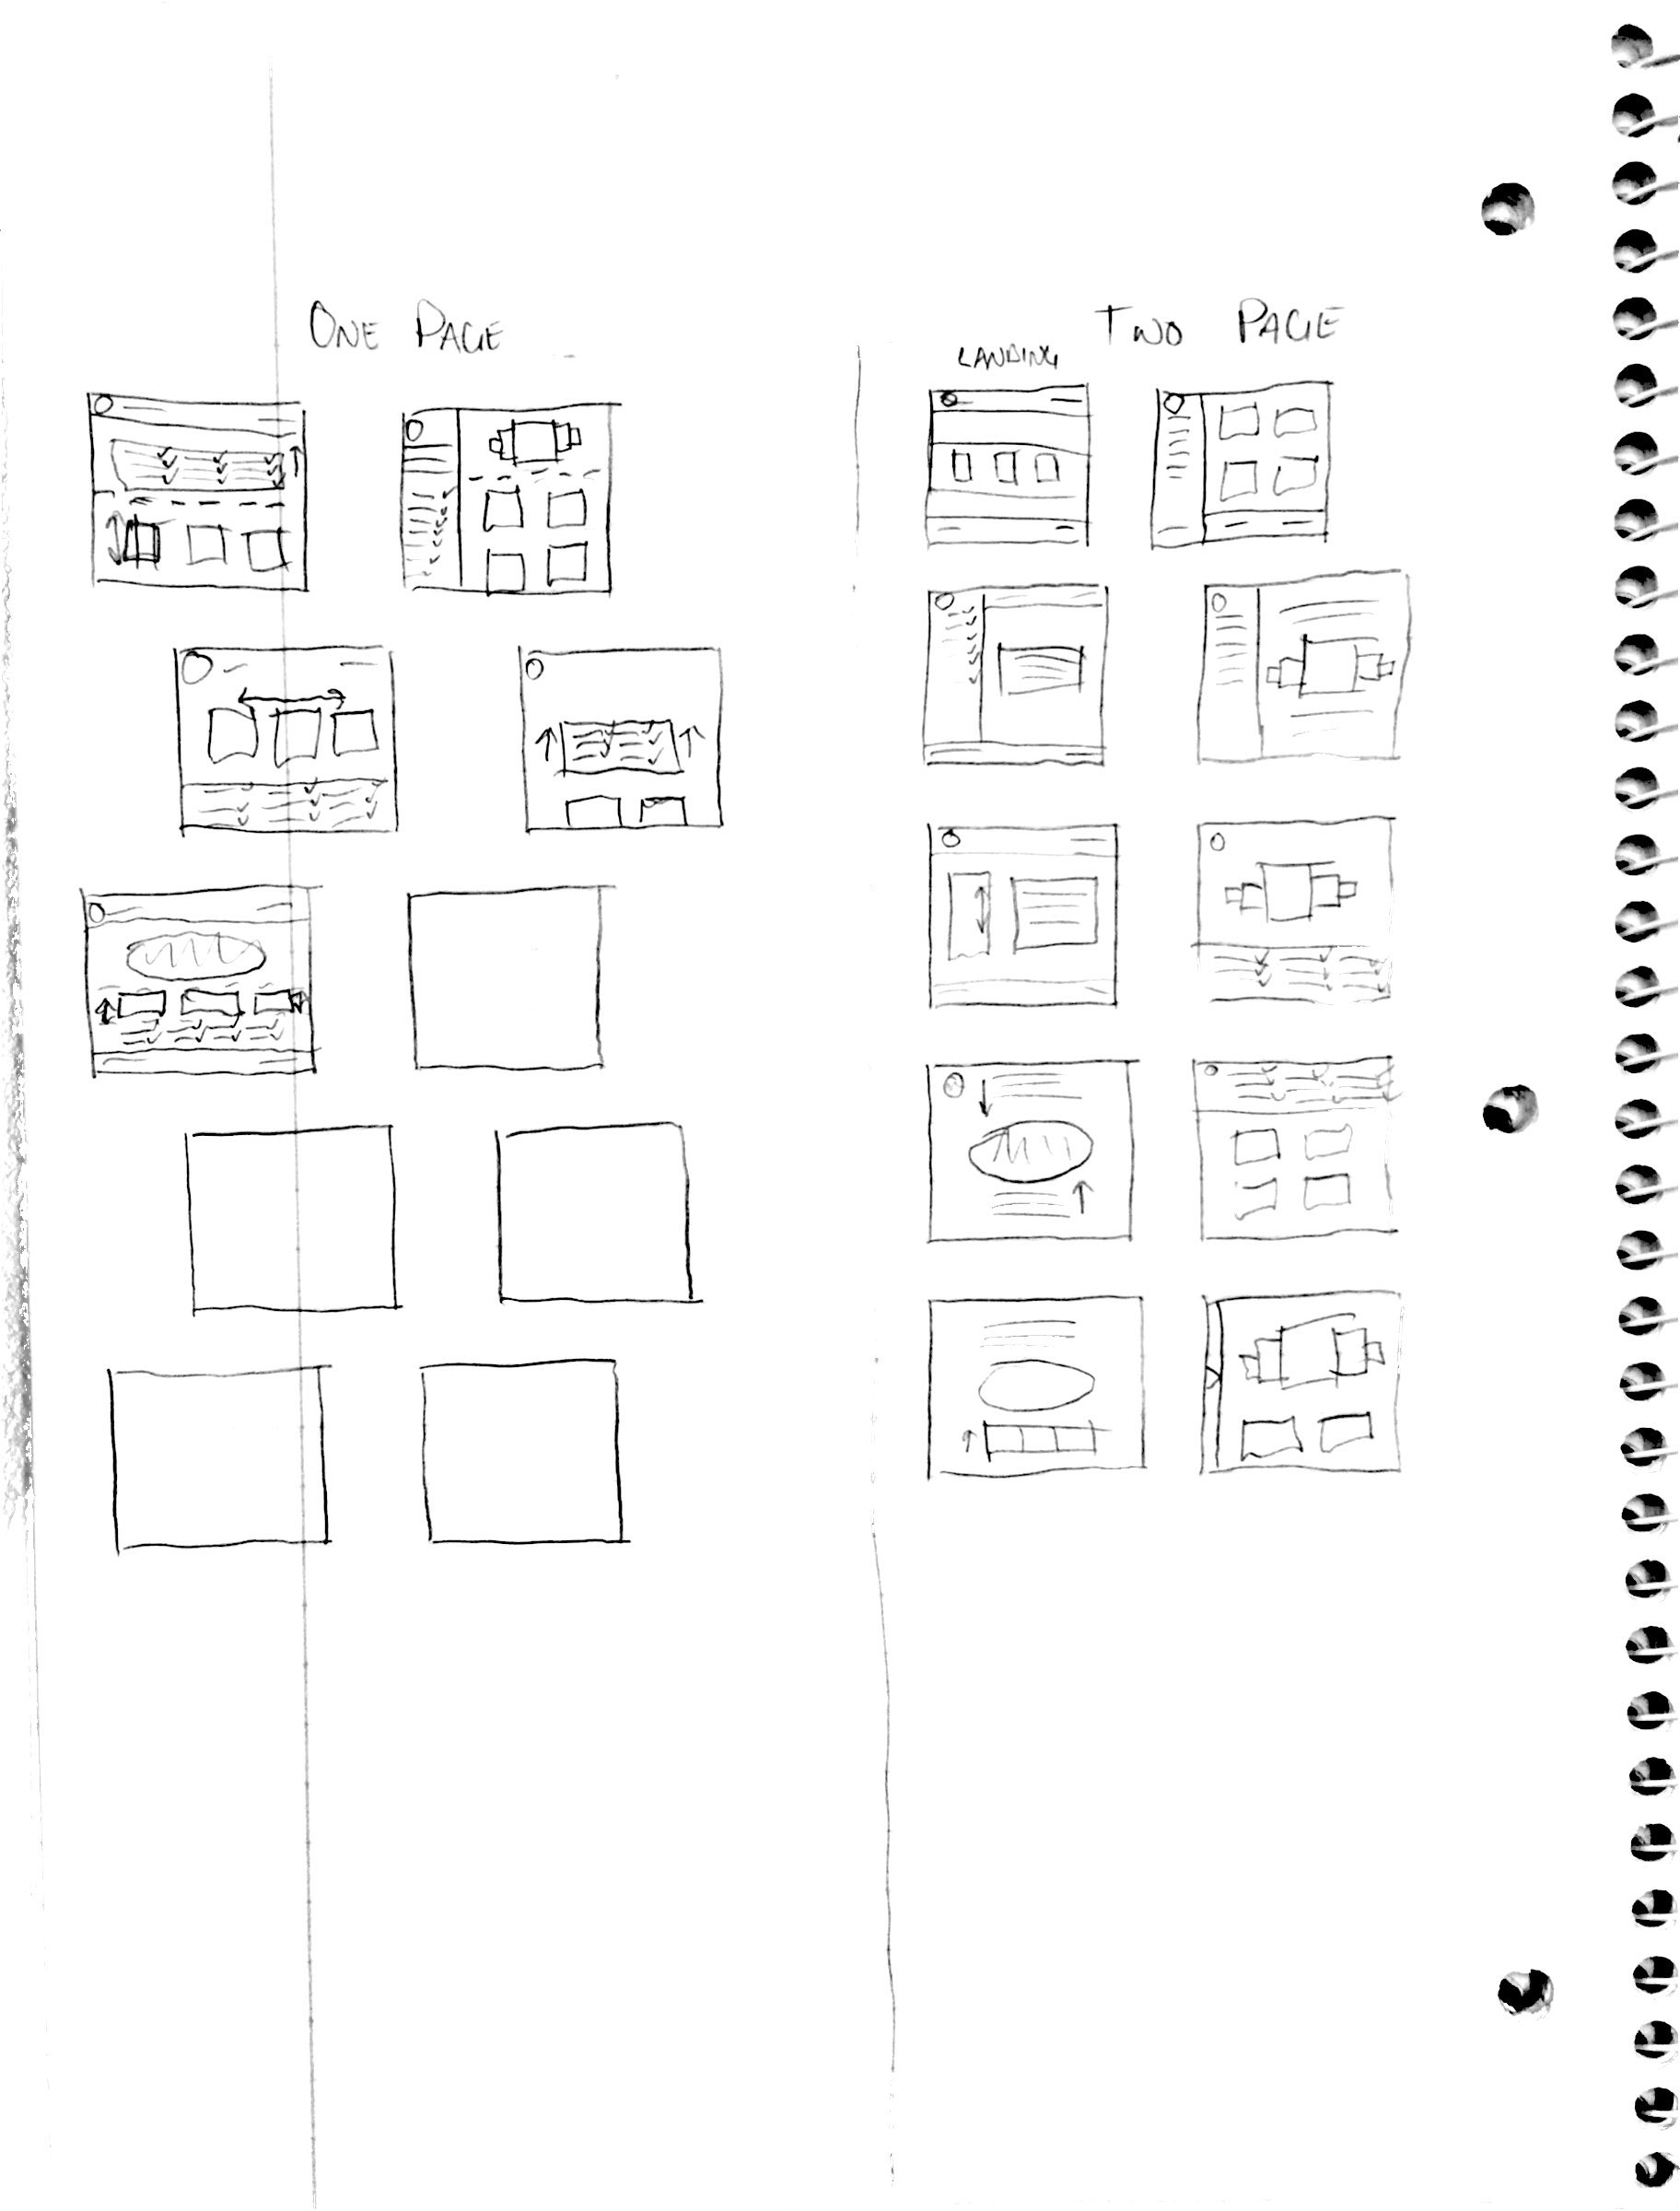 ONE PAGE
TWO PAGE
LANDING